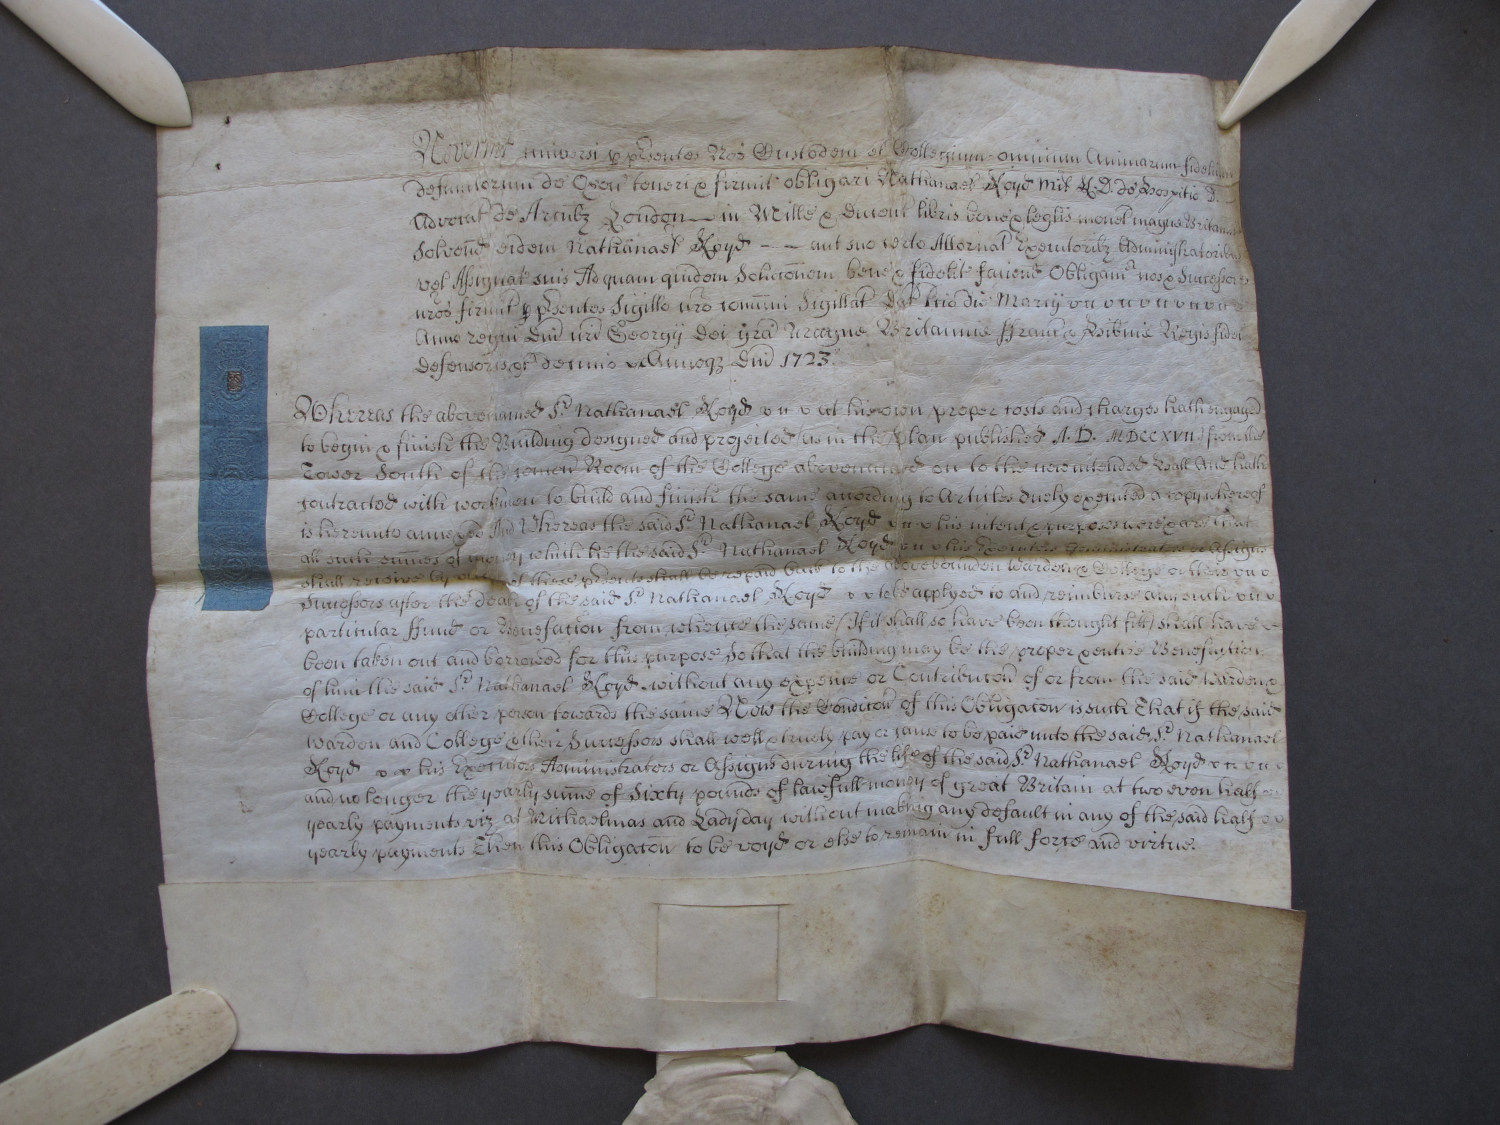 Noverint universi p psentes Nos Custodem et Collegium omnium Animarum fidelium
defunctorum de Oxon teneri & firmit obligari Nathanael Lloyd Mil L.D. de Hospitio D.
Advocat de Arcubz London in Mille & Ducent libris bone & leglis monet magne Britannie
Solvend eidem Nathanael Lloyd aut suo certo Attornat Executoribz Administratoribz
vel Assignat suis Ad quam quidem Solucionem bene & fidelit faciend Obligam nos & Successores
nros firmit p psentes Sigillo nro comuni Sigillat Dat die Martij
Anno regni Dni nri Georgij Dei gra Magne Britannie Franc & Hibnie Regis fidei
defensoris &c decimo Annoqz Dni 1723.
Whereas the abovenamed Sr. Nathanael Lloyd at his own proper costs and charges hath engaged
to begin & finish the Building designed and projected as in the Plan published A.D. MDCCXVII from the
Tower South of the comon Room of the College abovenamed on to the now intended Hall And hath
contracted with workmen to build and finish the same according to Articles duely executed a copy whereof
is hereunto annexed And Whereas the said Sr. Nathanael Lloyd his intent & purposes were & are that
all such sumes of money which he the said Sr. Nathanael Lloyd his Executors Administrators or Assigns
shall receive by virtue of these psents shall be repaid back to the abovebounden Warden & College or their
Successors after the death of the said Sr. Nathanael Lloyd to be applyed to and reimburse any such
particular Fund or Benefaction from whence the same (If it shall so have been thought fitt) shall have
been taken out and borrowed for this purpose So that the building may be the proper & entire Benefaction
of him the said Sr. Nathanael Lloyd without any expence or Contribucon of or from the said Warden &
College or any other person towards the same Now the Condicon of this Obligacon is such That if the said
Warden and College & their Successors shall well & truely pay or cause to be paid unto the said Sr. Nathanael
Lloyd his Executors Administrators or Assigns during the life of the said Sr. Nathanael Lloyd
and no longer the yearly sume of Sixty pounds of lawfull money of great Britain at two even half
yearly payments viz at Michaelmas and Ladyday without making any default in any of the said half
yearly payments Then this Obligacon to be voyd or else to remain in full force and virtue.